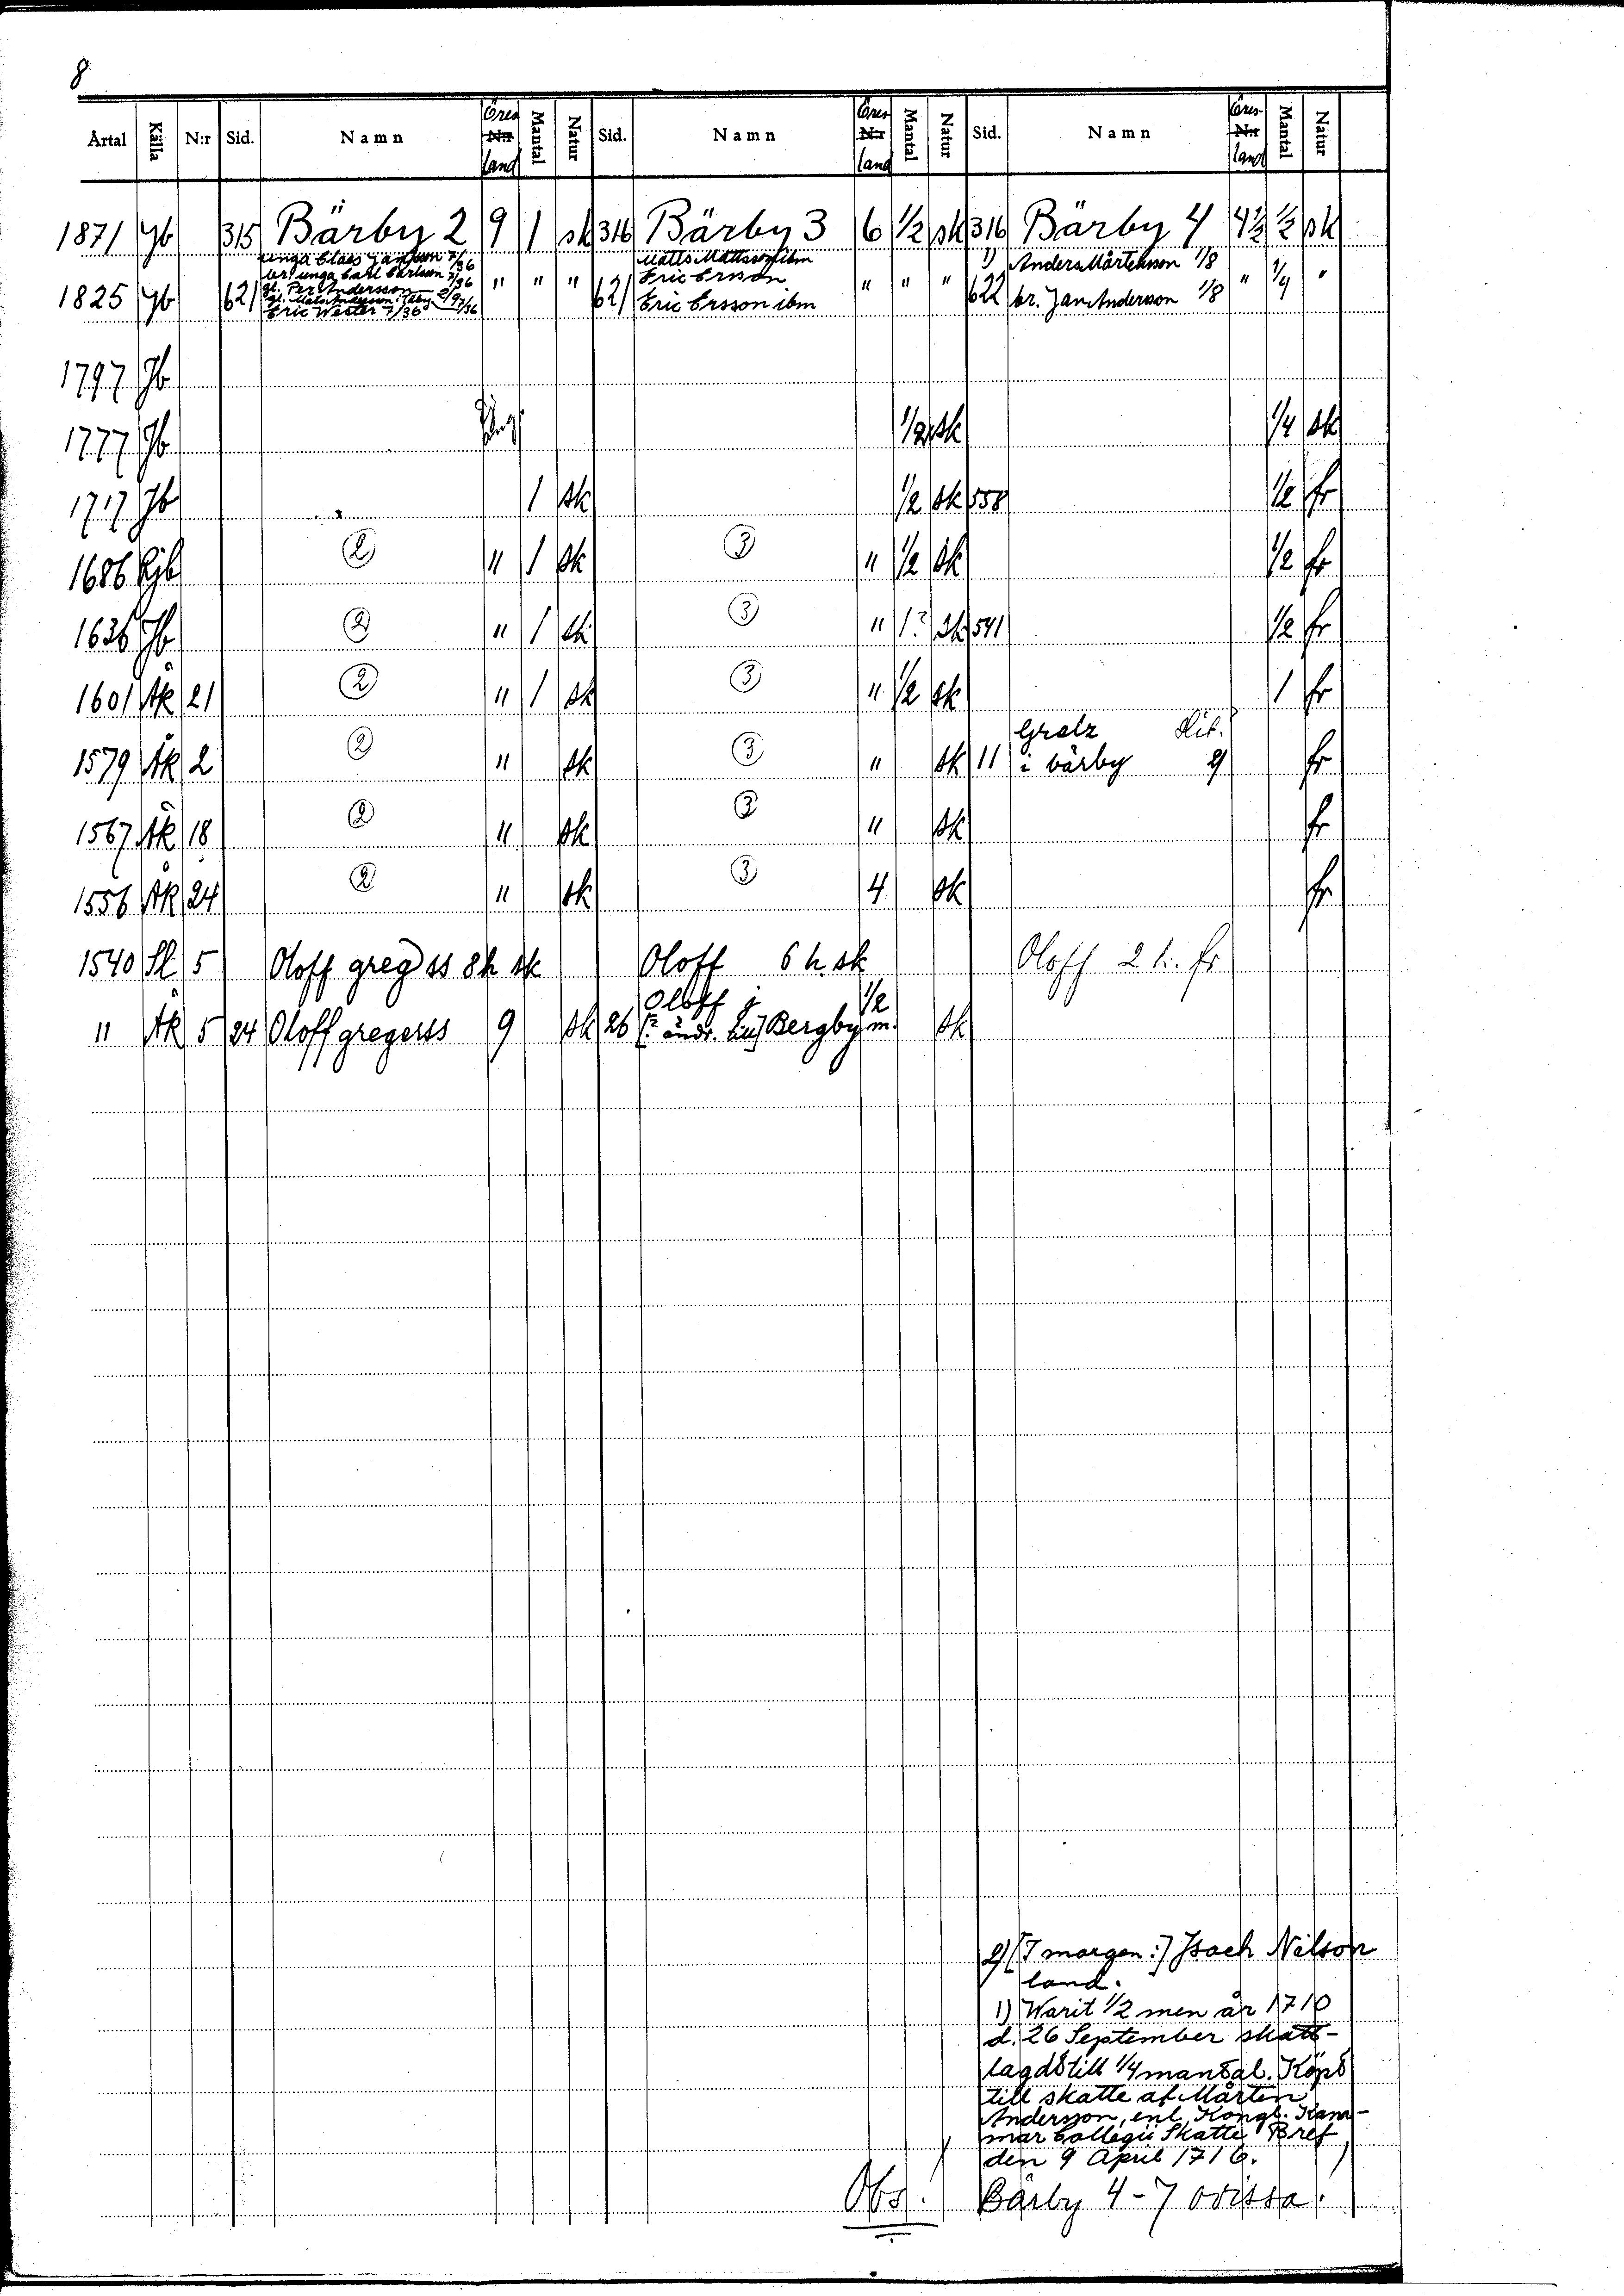 8
Årtal Källa N:r Sid. Namn Öres N:r land Mantal Natur Sid. Namn Öres N:r land Mantal Natur Sid. Namn Öres N:r land Mantal Natur
1871 Jb 315 Bärby 2 9 1 sk 316 Bärby 3 6 1/2 sk 316 Bärby 4 4 1/2 1/2 sk
unga Claes Jansson 7/36 Matts Mattsson ibm 1) Anders Mårtensson 1/8
br. unga Carl Carlsson 7/36 Eric Ersson
1825 Jb 621 gl. Per Andersson 7/36 " " " 621 Eric Ersson ibm " " " 622 br. Jan Anderson 1/8 " 1/4 "
Eric Wester 7/36
1797 Jb
1777 Jb 1/2 sk 1/4 sk
1717 Jb 1 sk 1/2 sk 558 1/2 fr
1686 Rjb 2 " 1 sk 3 " 1/2 sk 1/2 fr
1636 Jb 2 " 1 sk 3 " 1? sk 541 1/2 fr
1601 Åk 21 2 " 1 sk 3 " 1/2 sk 1 fr
Grelz
1579 Åk 2 2 " sk 3 " sk 11 i bärby 2) fr
1567 Åk 18 2 " sk 3 " sk fr
1556 Åk 24 2 " sk 3 4 sk fr
1540 Sl 5 Oloff greg ss 8 h sk Oloff 6 h. sk Oloff 2 h. fr
Oloff j 1/2
" Åk 5 24 Oloff gregerss 9 sk 26 Bergby m. sk
2) [7 morgen:] Jsach Nilson
land.
1) Warit 1/2 men år 1710
d. 26 September skatt-
lagdt till 1/4 mantal. Köpt
till skatte af Mårten
Andersson, enl. Kongl. Kam-
mar Collegii Skatte Bref
den 9 April 1716.
Obs. Bärby 4-7 ovissa.